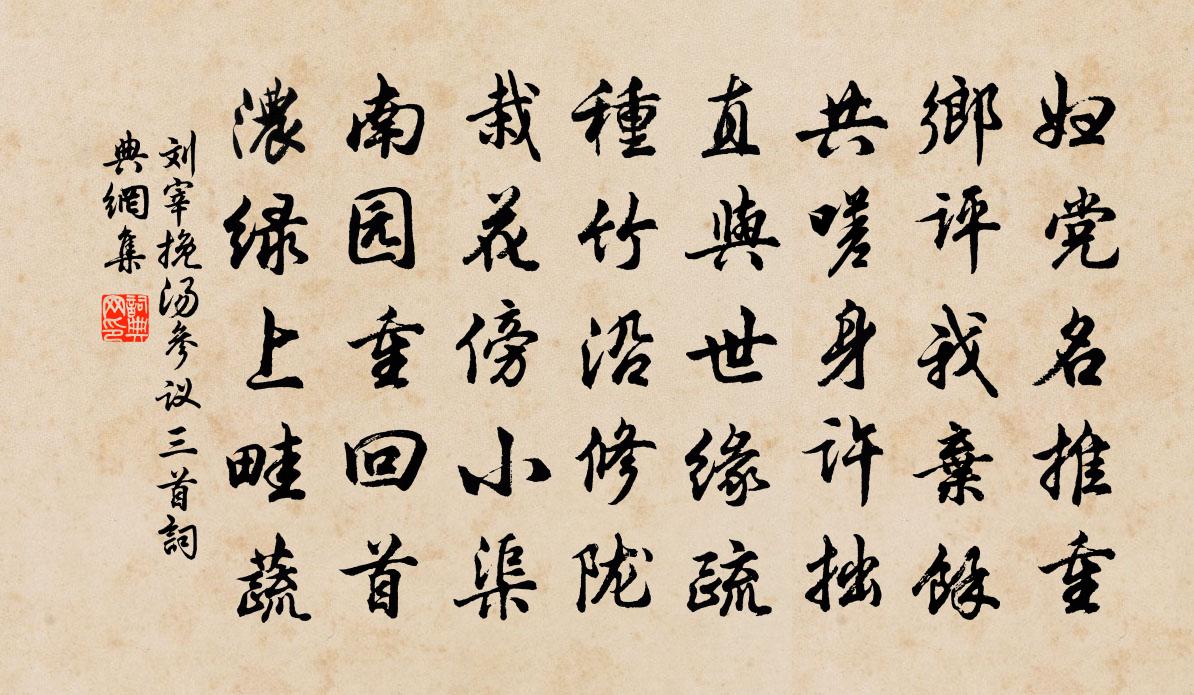 妇党名推重
鄉评我棄餘
共嗟身许拙
直與世缘疏
種竹沿修陇
栽花傍小渠
南园重回首
濃绿上畦蔬
刘宰挽汤参议三首詞
典網集
詞典
网印